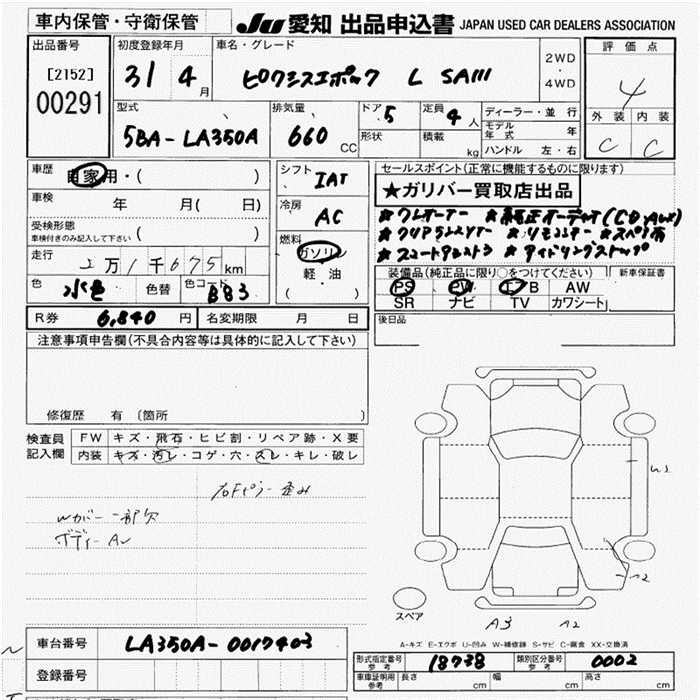 車内保管・守衛保管
JU 愛知 出品申込書 JAPAN USED CAR DEALERS ASSOCIATION
出品番号
[2152]
00291
初度登録年月
31 4 月
車名・グレード
L SAIII
2WD
・
4WD
評価点
4
外装 内装
C C
型式
5BA-LA350A
排気量
660 CC
ドア 5
形状
定員 4 人
積載 kg
ディーラー・並行
モデル年式 年
ハンドル 左・右
車歴
自家用・( )
車検 年 月( 日)
受検形態
車検付きのみ記入して下さい ( )
走行
2万1千675 km
色 水色 色替 色コード B83
シフト IAT
冷房 AC
燃料
ガソリン
軽・油
( )
セールスポイント(正常に機能するものに限ります)
★ガリバー買取店出品
★ワンオーナー ★純正オーディオ(CD,AUX)
★スマートアシスト3 ★アイドリングストップ
装備品(純正品に限り○をつけてください) 新車保証書
PS PW エアB AW
SR ナビ TV カワシート
後日品
R券 6,840 円 名変期限 月 日
注意事項申告欄(不具合内容等は具体的に記入して下さい)
修復歴 有 〔箇所
検査員記入欄
FW キズ・飛石・ヒビ割・リペア跡・X要
内装 キズ・汚レ・コゲ・穴・スレ・キレ・破レ
Wカバー一部欠
スペア
A3 A2
A-キズ E-エクボ U-凹み W-補修跡 S-サビ C-腐食 XX-交換済
車台番号 LA350A-0017403
登録番号
形式指定番号 参考 18738 類別区分番号 参考 0002
車庫証明用 参考 長さ cm 幅 cm 高さ cm